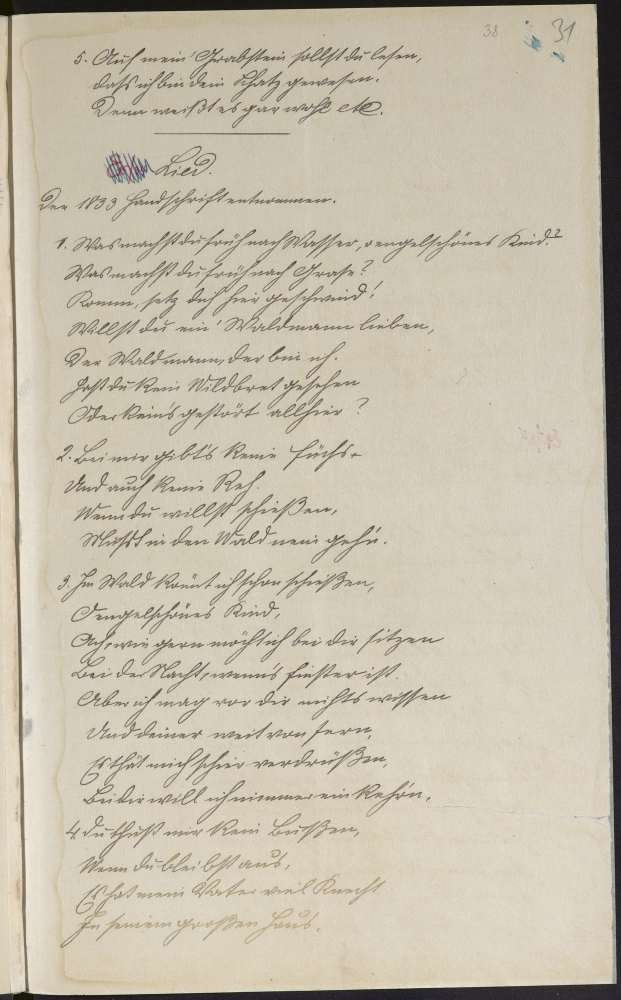 38 31
5. Auf mein' Grabstein sollst du lesen,
dass ich bin dein Schatz gewesen.
Denn weißt es gar wohl etc.
Lied.
Der 1833 Handschrift entnommen.
1. Was machst du früh nach Wasser, o engelschönes Kind?
Was machst du früh nach Grase?
Komm, setz dich hier geschwind!
Willst du ein' Waldmann lieben,
Der Waldmann, der bin ich.
Hast du kein Wildbret gesehen
Oder keins gestört allhier?
2. Bei mir gibt's keine Füchs-
Und auch keine Reh.
Wenn du willst schießen,
Musst in den Wald nein gehn.
3. Im Wald könnt ich schon schießen,
O engelschönes Kind,
Ach, wie gern möcht ich bei dir sitzen
Bei der Nacht, wenn's finster ist.
Aber ich mag von dir nichts wissen
Und deiner weit von fern,
Es thät mich schier verdrüßen,
Bei dir will ich nimmer ein
4. Du thust mir kein Bußen,
Wenn du bleibst aus,
Es hat mein Vater viel Knecht
In seinem großen Haus.